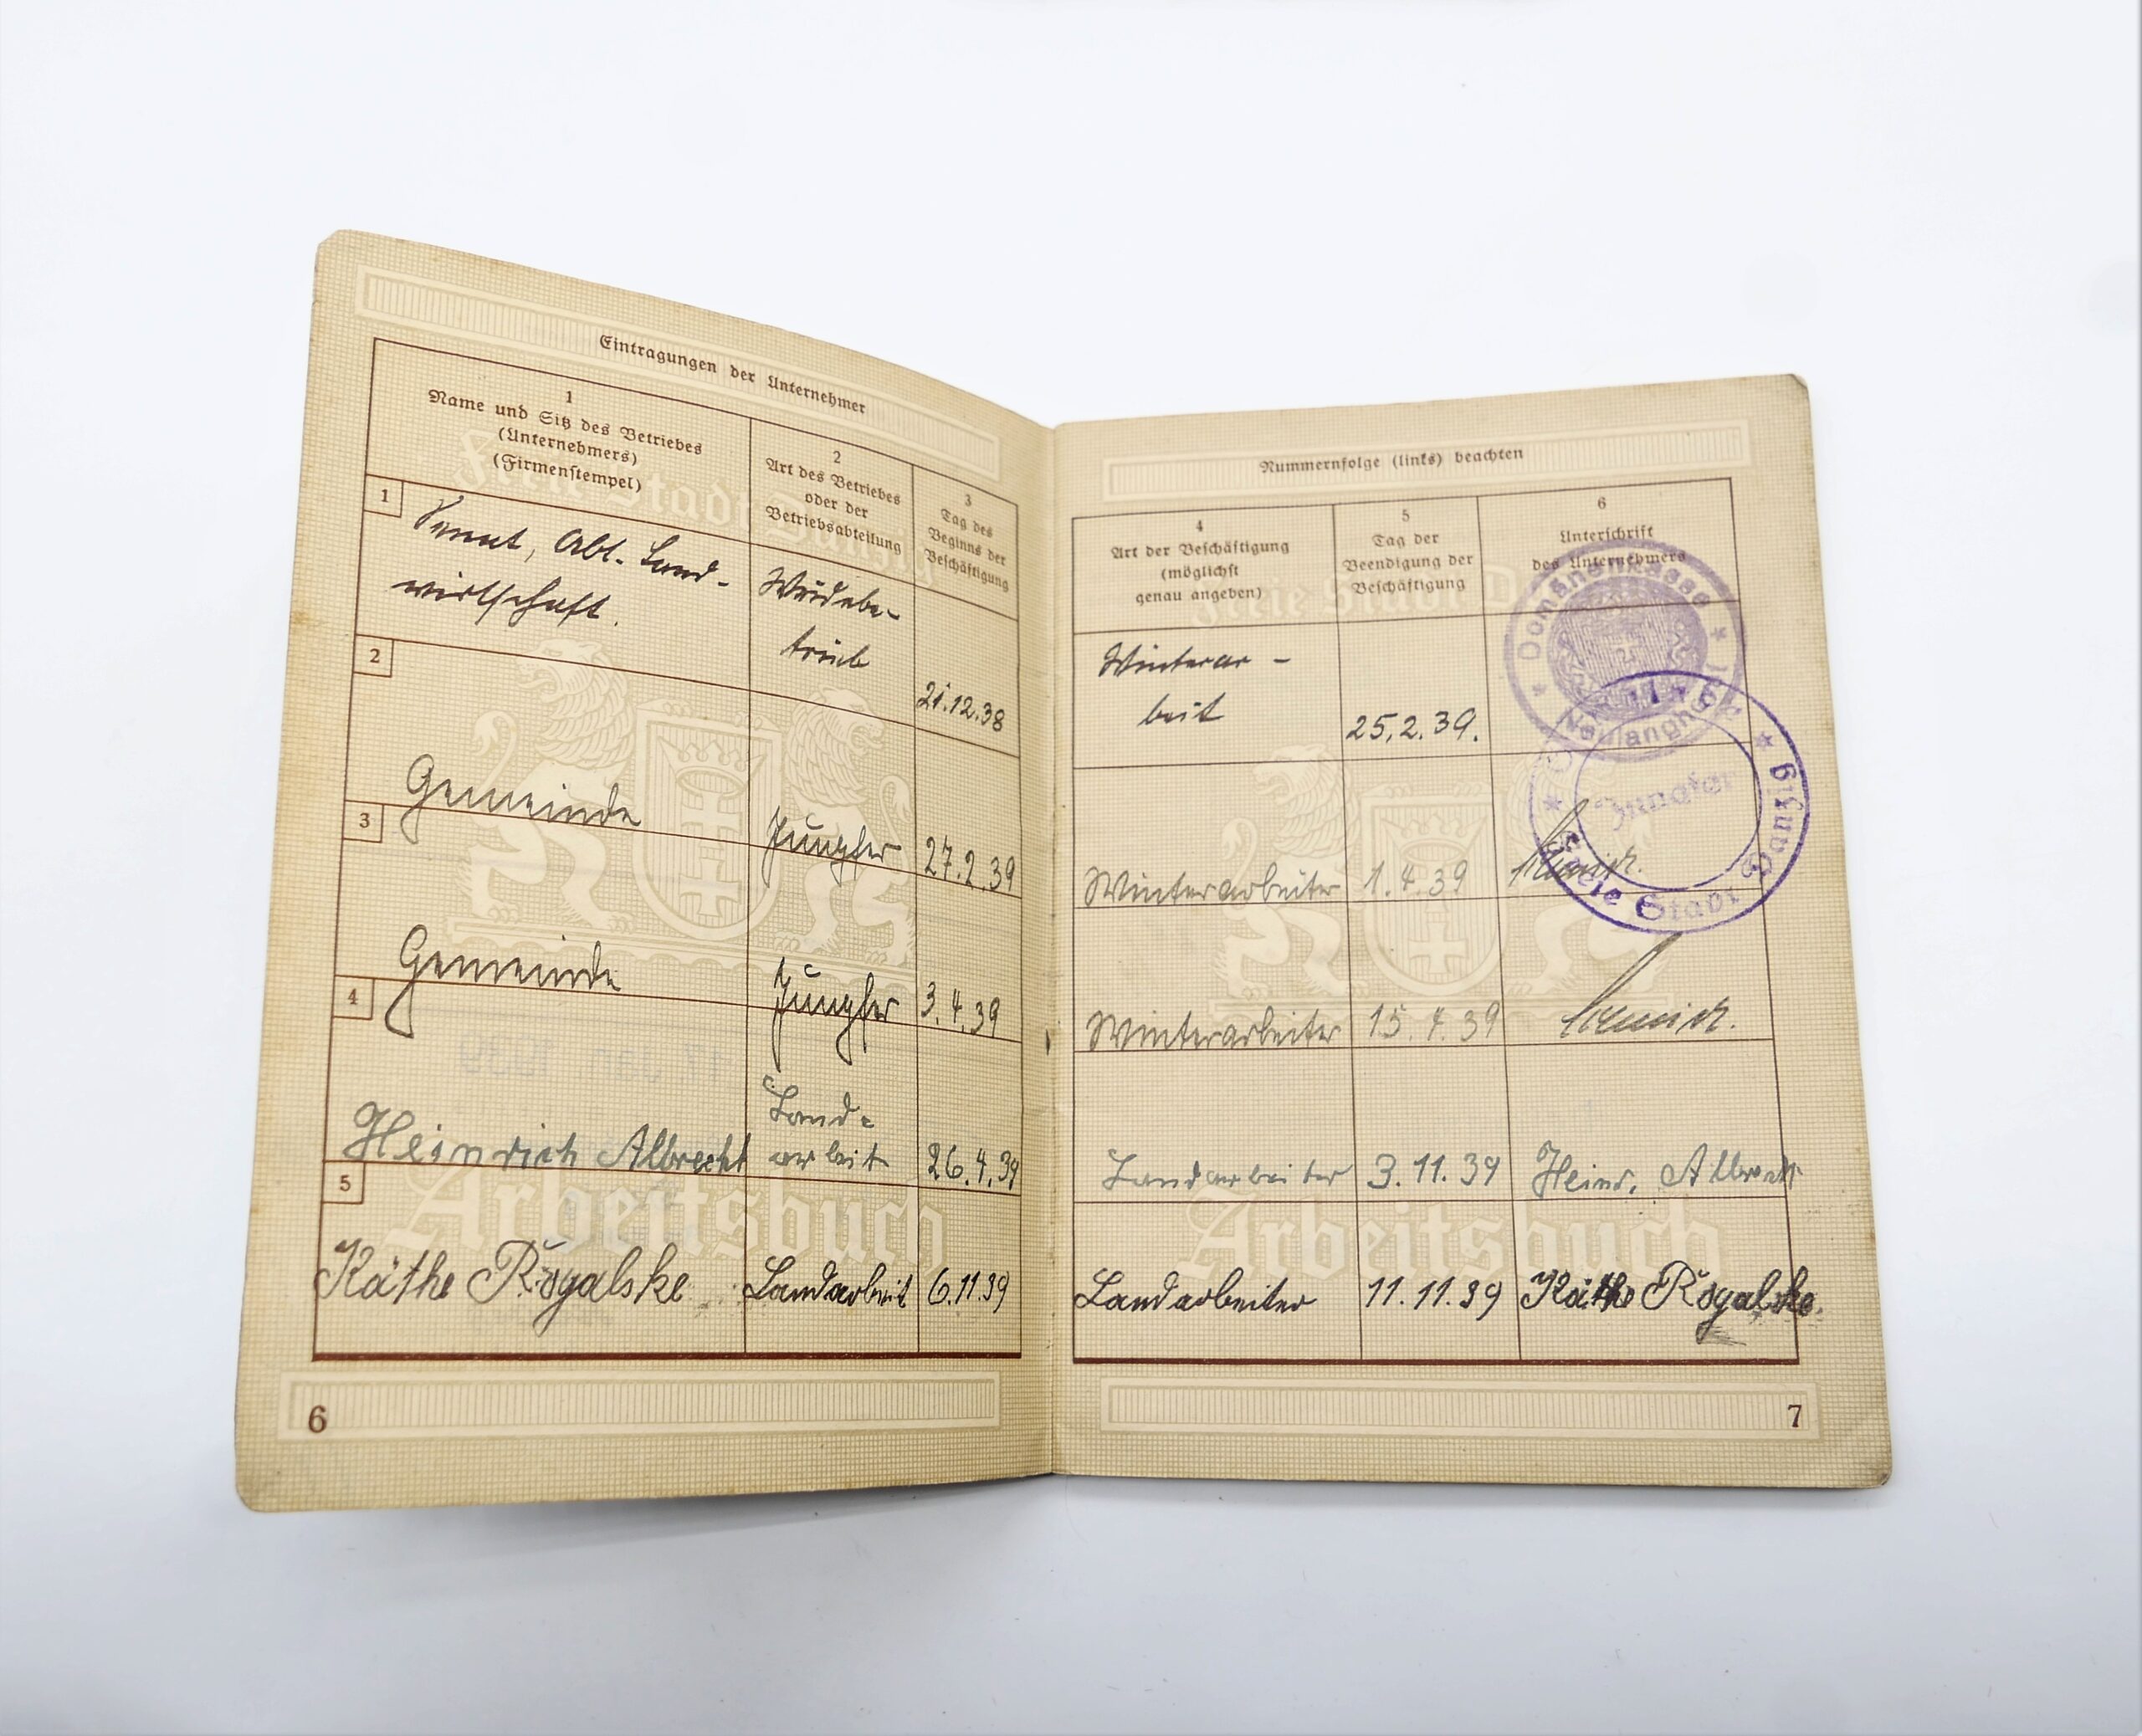 Eintragungen der Unternehmer
1
Name und Sitz des Betriebes
(Unternehmers)
(Firmenstempel)
2
Art des Betriebes
oder der
Betriebsabteilung
3
Tag des
Beginns der
Beschäftigung
1
Senat, Abt. Land-
wirtschaft.
Weidebe-
trieb
21.12.38
2
Gemeinde
Jungfer
27.2.39
3
Gemeinde
Jungfer
3.4.39
4
Heinrich Albrecht
Land-
arbeit
26.4.39
5
Käthe Rogalske
Landarbeit
6.11.39
Freie Stadt Danzig
Arbeitsbuch
6
Nummernfolge (links) beachten
4
Art der Beschäftigung
(möglichst
genau angeben)
5
Tag der
Beendigung der
Beschäftigung
6
Unterschrift
des Unternehmers
Winterar-
beit
25.2.39.
Domänenkasse
Winterarbeiter
1.4.39
Jungfer
Freie Stadt Danzig
Winterarbeiter
15.4.39
Landarbeiter
3.11.39
Heinr. Albrecht
Landarbeiter
11.11.39
Käthe Rogalske.
Arbeitsbuch
7